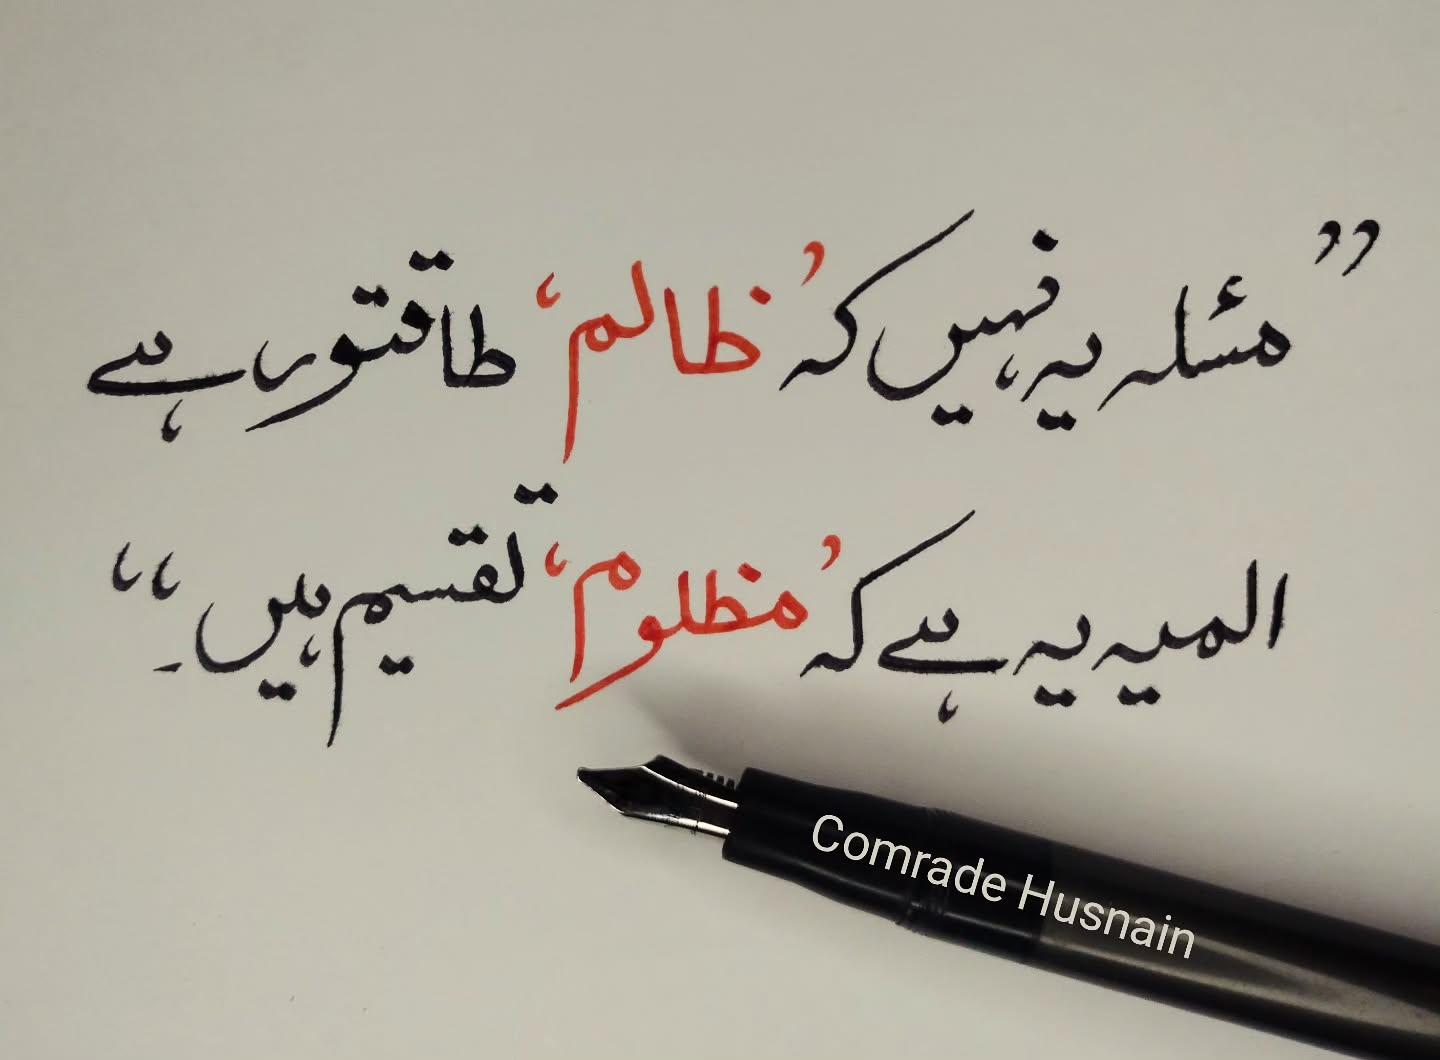 ”مسئلہ یہ نہیں کہ ’ظالم‘ طاقتور ہے
المیہ یہ ہے کہ ’مظلوم‘ تقسیم ہیں۔“
Comrade Husnain